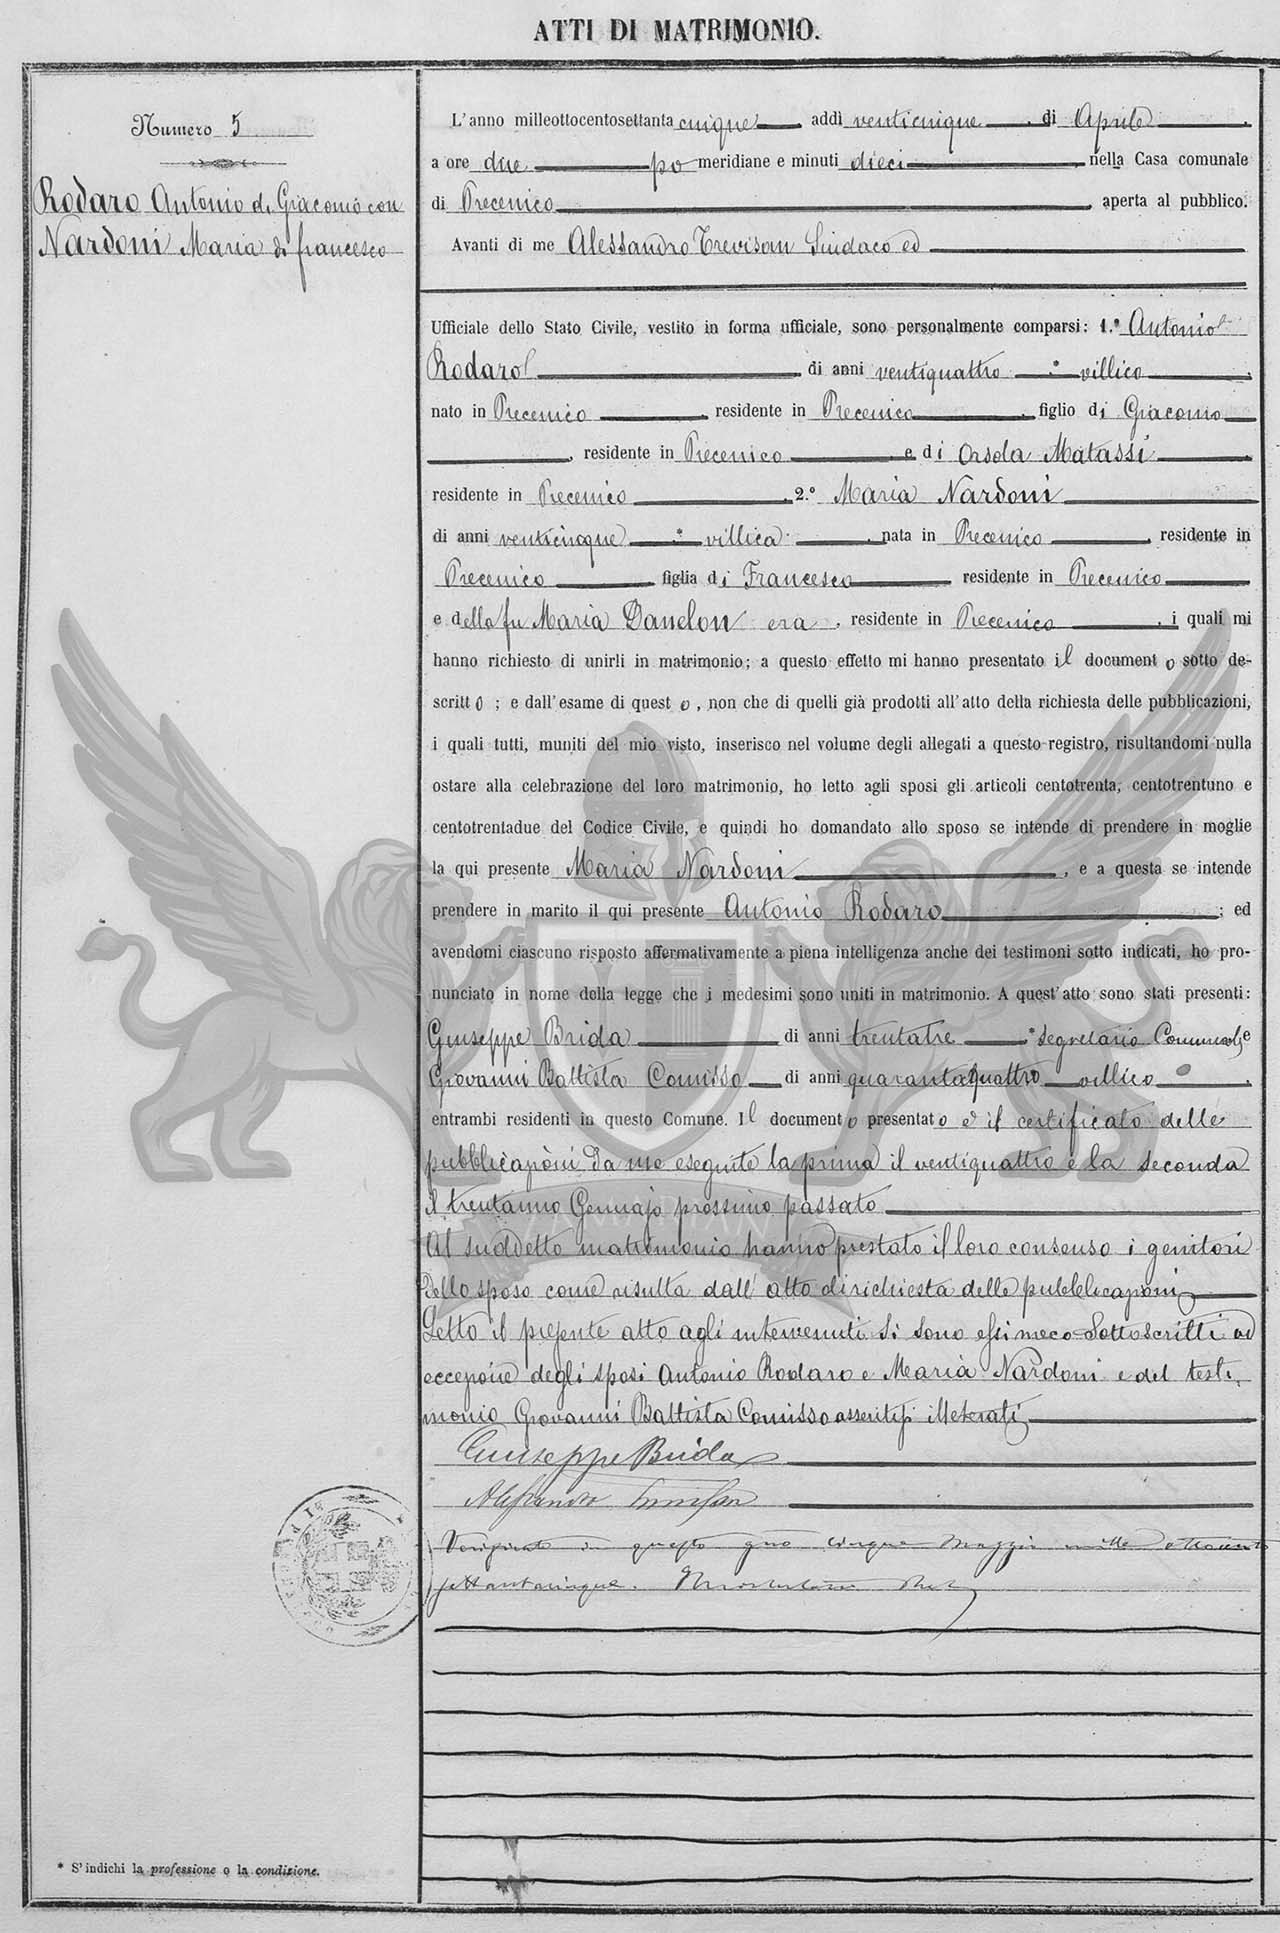 ATTI DI MATRIMONIO.
Numero 5
Rodaro Antonio di Giacomo con
Nardoni Maria di francesco
L'anno milleottocentosettanta cinque, addi venticinque, di Aprile,
a ore due po meridiane e minuti dieci, nella Casa comunale
di Precenico, aperta al pubblico.
Avanti di me Alessandro Trevisan Sindaco ed
Ufficiale dello Stato Civile, vestito in forma ufficiale, sono personalmente comparsi: 1.° Antonio
Rodaro di anni ventiquattro * villico,
nato in Precenico, residente in Precenico, figlio di Giacomo
, residente in Precenico e di Orsola Matassi,
residente in Precenico, 2.° Maria Nardoni
di anni venticinque * villica, nata in Precenico, residente in
Precenico figlia di Francesco residente in Precenico
e della fu Maria Danelon era, residente in Precenico, i quali mi
hanno richiesto di unirli in matrimonio; a questo effetto mi hanno presentato il documento sotto de-
scritto; e dall'esame di questo, non che di quelli già prodotti all'atto della richiesta delle pubblicazioni,
i quali tutti, muniti del mio visto, inserisco nel volume degli allegati a questo registro, risultandomi nulla
ostare alla celebrazione del loro matrimonio, ho letto agli sposi gli articoli centotrenta, centotrentuno e
centotrentadue del Codice Civile, e quindi ho domandato allo sposo se intende di prendere in moglie
la qui presente Maria Nardoni, e a questa se intende
prendere in marito il qui presente Antonio Rodaro; ed
avendomi ciascuno risposto affermativamente a piena intelligenza anche dei testimoni sotto indicati, ho pro-
nunciato in nome della legge che i medesimi sono uniti in matrimonio. A quest'atto sono stati presenti:
Giuseppe Brida di anni trentatre * segretario Comunale e
Giovanni Battista Comisso di anni quarantaquattro villico,
entrambi residenti in questo Comune. Il documento presentato è il certificato delle
pubblicazioni da me eseguite la prima il ventiquattro e la seconda
il trentauno Gennajo prossimo passato
Al suddetto matrimonio hanno prestato il loro consenso i genitori
dello sposo come risulta dall'atto di richiesta delle pubblicazioni
Letto il presente atto agli intervenuti si sono essi meco sottoscritti ad
eccezione degli sposi Antonio Rodaro e Maria Nardoni e del testi-
monio Giovanni Battista Comisso asseritisi illeterati
Giuseppe Brida
Alessandro Trevisan
Verificato in questo giorno cinque Maggio mille ottocento
settantacinque.
* S'indichi la professione o la condizione.